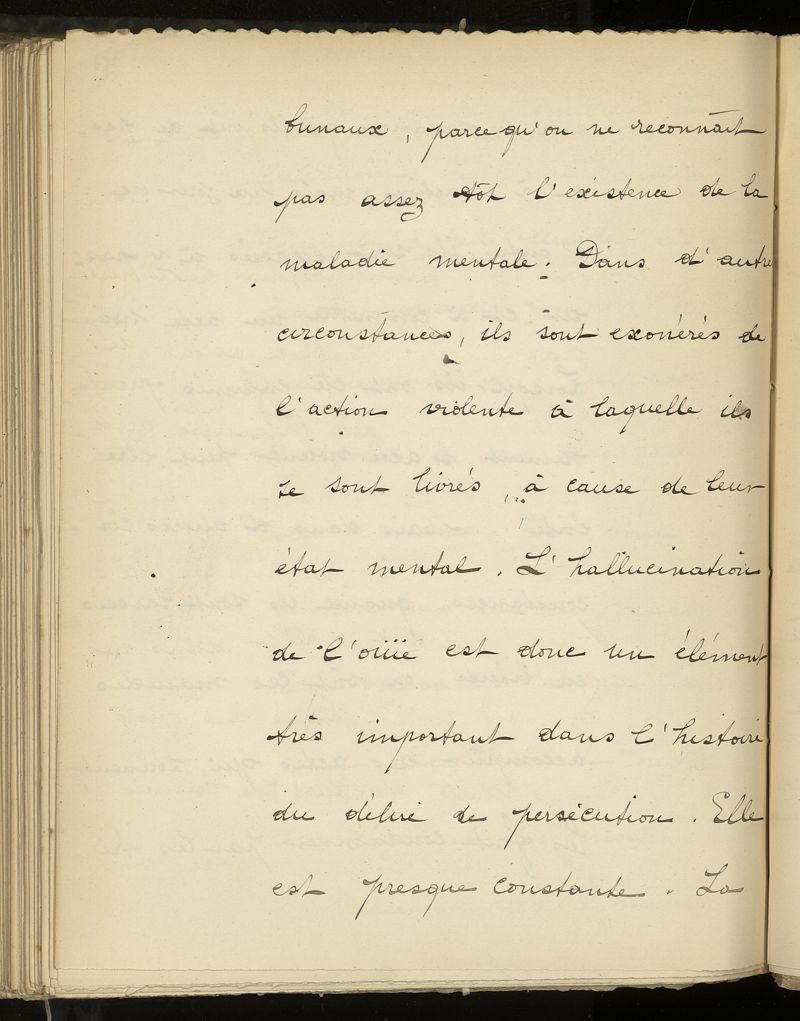 bunaux, parcequ'on ne reconnait
pas assez tôt l'existence de la
maladie mentale. Dans d'autres
circonstances, ils sont exonérés de
l'action violente à laquelle ils
se sont livrés, à cause de leur
état mental. L'hallucination
de l'ouïe est donc un élément
très important dans l'histoire
du délire de persécution. Elle
est presque constante. La